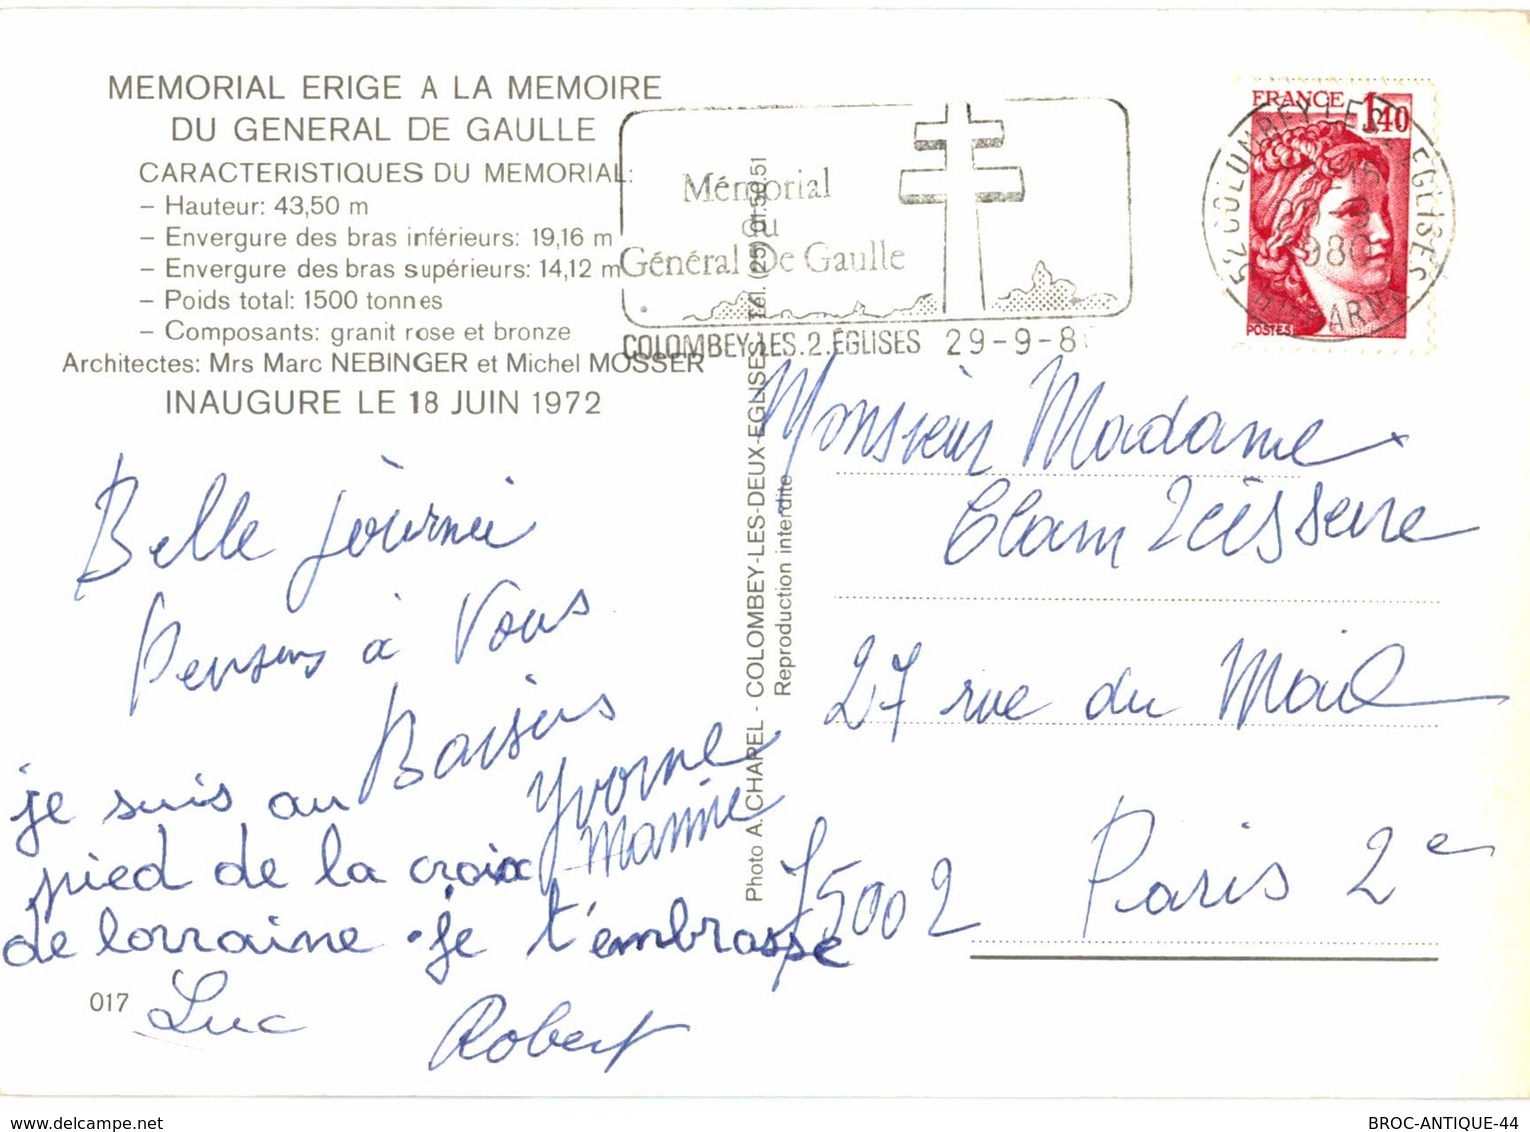 MEMORIAL ERIGE A LA MEMOIRE
DU GENERAL DE GAULLE
CARACTERISTIQUES DU MEMORIAL:
– Hauteur: 43,50 m
– Envergure des bras inférieurs: 19,16 m
– Envergure des bras supérieurs: 14,12 m
– Poids total: 1500 tonnes
– Composants: granit rose et bronze
Architectes: Mrs Marc NEBINGER et Michel MOSSER
INAUGURE LE 18 JUIN 1972
Mémorial
du
Général De Gaulle
COLOMBEY-LES.2.EGLISES 29-9-8
FRANCE 1,40
POSTES
52 COLOMBEY LES EGLISES
1980
Hte MARNE
Belle journée
Pensons à Vous
Baisers
Yvonne
Mamie
je suis au
pied de la croix
de lorraine. je t'embrasse
Luc
Robert
017
Photo A. CHAPEL - COLOMBEY-LES-DEUX-EGLISES - Tél. (25) 01.50.51
Reproduction interdite
Monsieur Madame
27 rue du Mail
75002 Paris 2e
www.delcampe.net
BROC-ANTIQUE-44